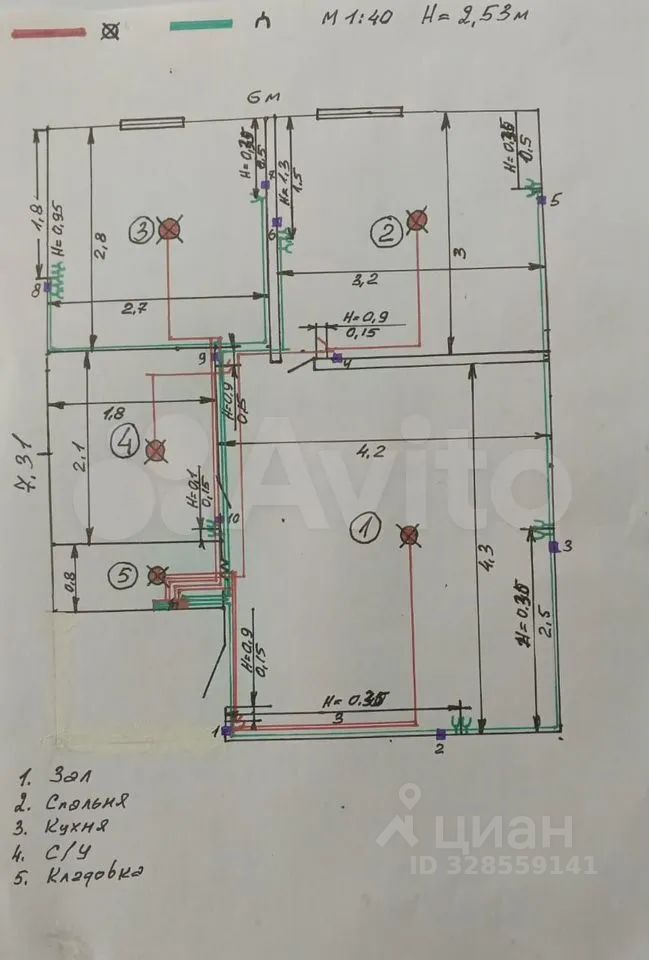 М 1:40 Н= 2,53м
6м
Н=0,35
0,5
Н=1,3
1,5
Н=0,35
0,5
1,8
Н=0,95
2,8
3
2
3
5
6
7
8
2,7
3,2
Н=0,9
0,15
4
9
Н=0,9
0,15
1,8
4,2
7.31
2,1
4
Н=0,1
0,15
10
1
4,3
3
Н=0.35
2,5
0,8
5
Н=0,9
0,15
Н= 0.35
3
1
2
Avito
1. Зал
2. Спальня
3. Кухня
4. С/У
5. Кладовка
циан
ID 328559141